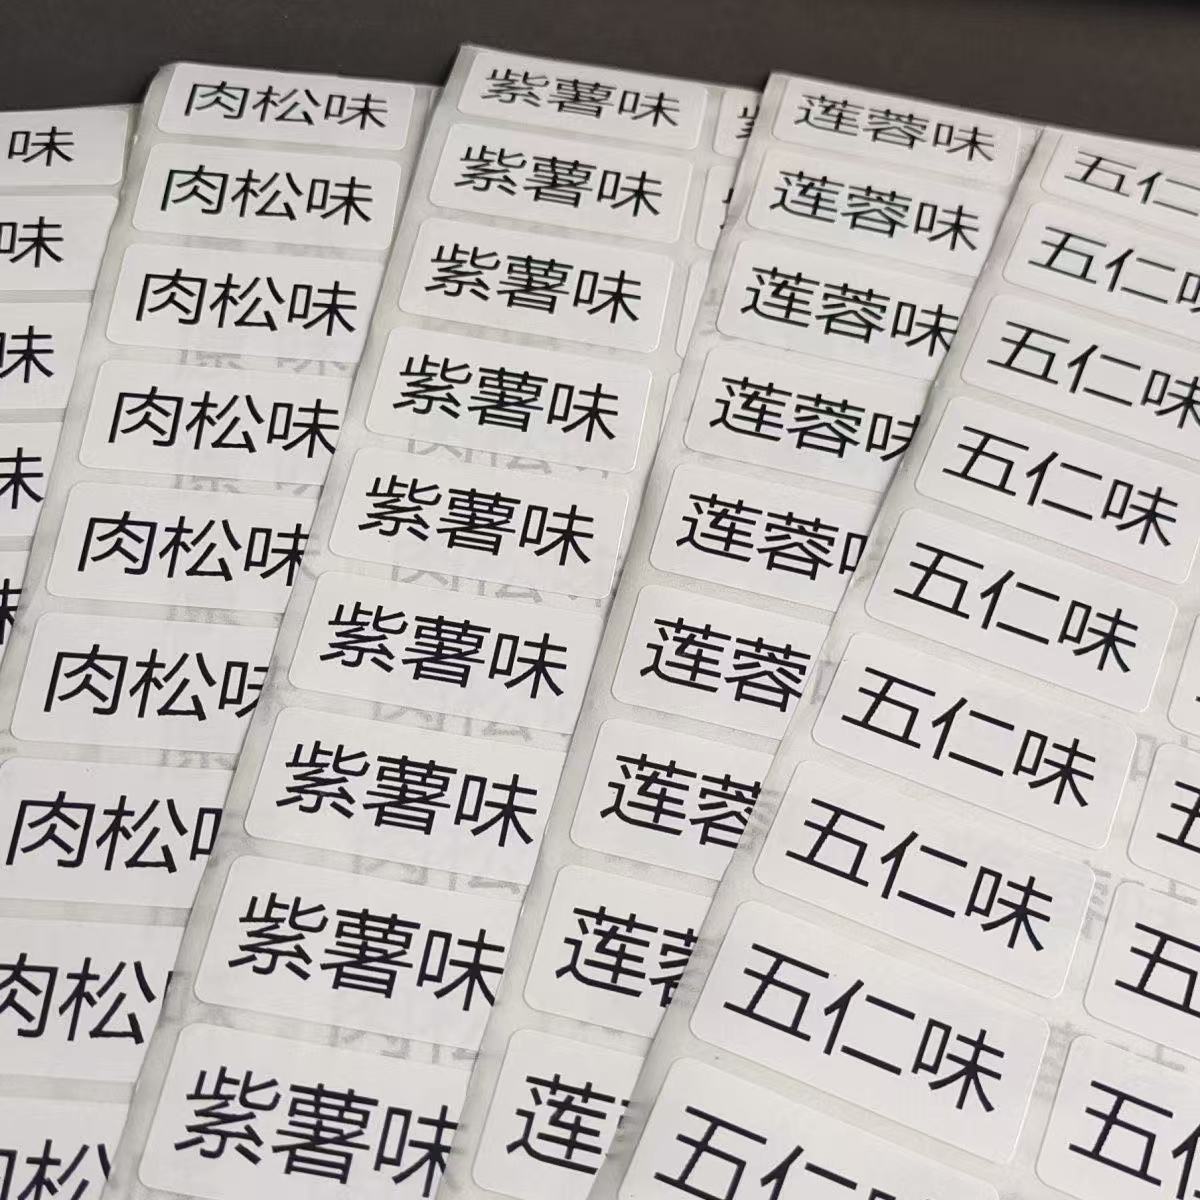 味
味
味
味
肉松味
肉松味
肉松味
肉松味
肉松味
肉松味
肉松
肉松
肉松
紫薯味
紫薯味
紫薯味
紫薯味
紫薯味
紫薯味
紫薯味
紫薯味
紫薯味
莲蓉味
莲蓉味
莲蓉味
莲蓉味
莲蓉
莲蓉
莲蓉
莲蓉
莲
五仁
五仁味
五仁味
五仁味
五仁味
五仁味
五仁味
五仁味
五仁
五
五
五仁